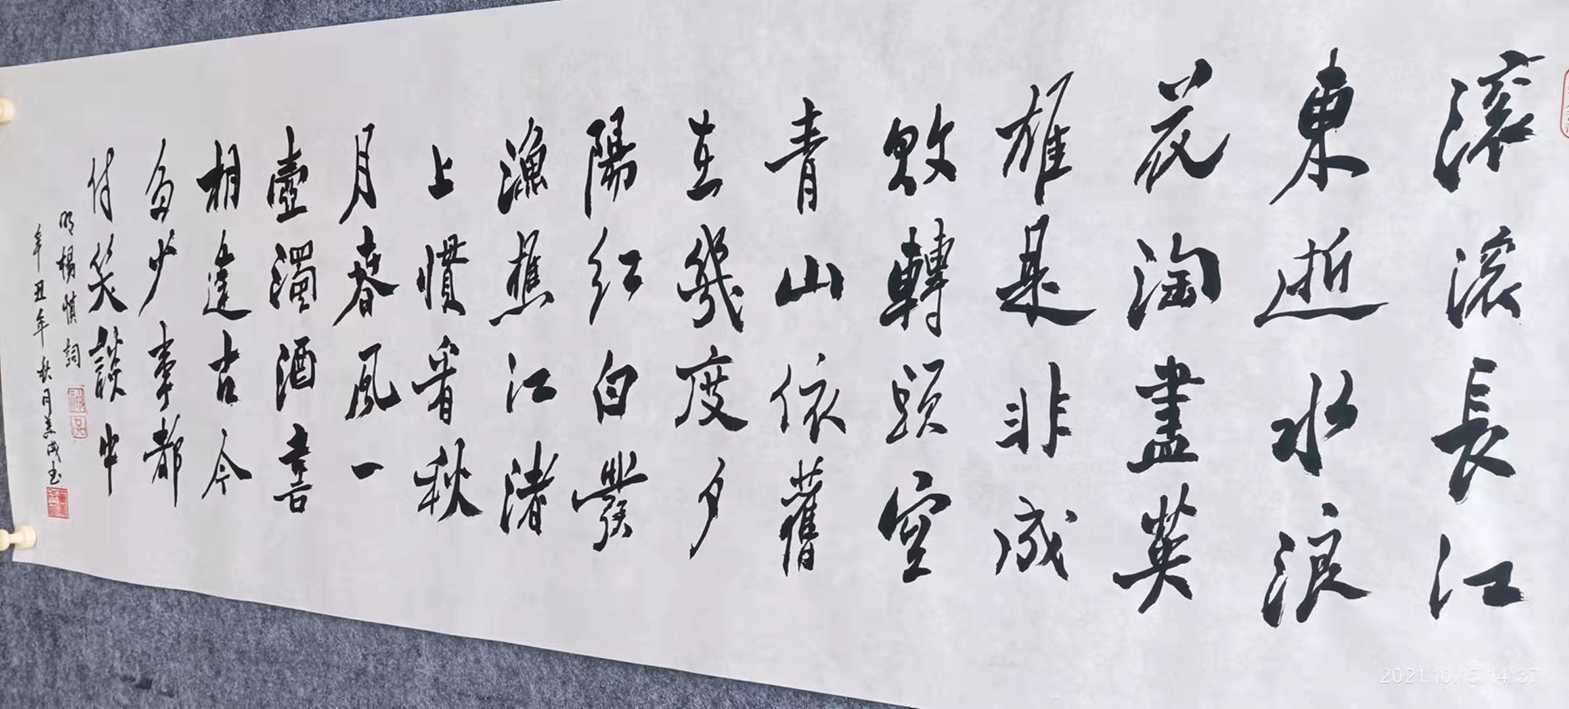 滚滚長江
東逝水浪
花淘盡英
雄是非成
敗轉頭空
青山依舊
在幾度夕
陽紅白發
漁樵江渚
上慣看秋
月春風一
壺濁酒喜
相逢古今
多少事都
付笑談中
明楊慎詞
辛丑年秋月
2021.10.15 14:37